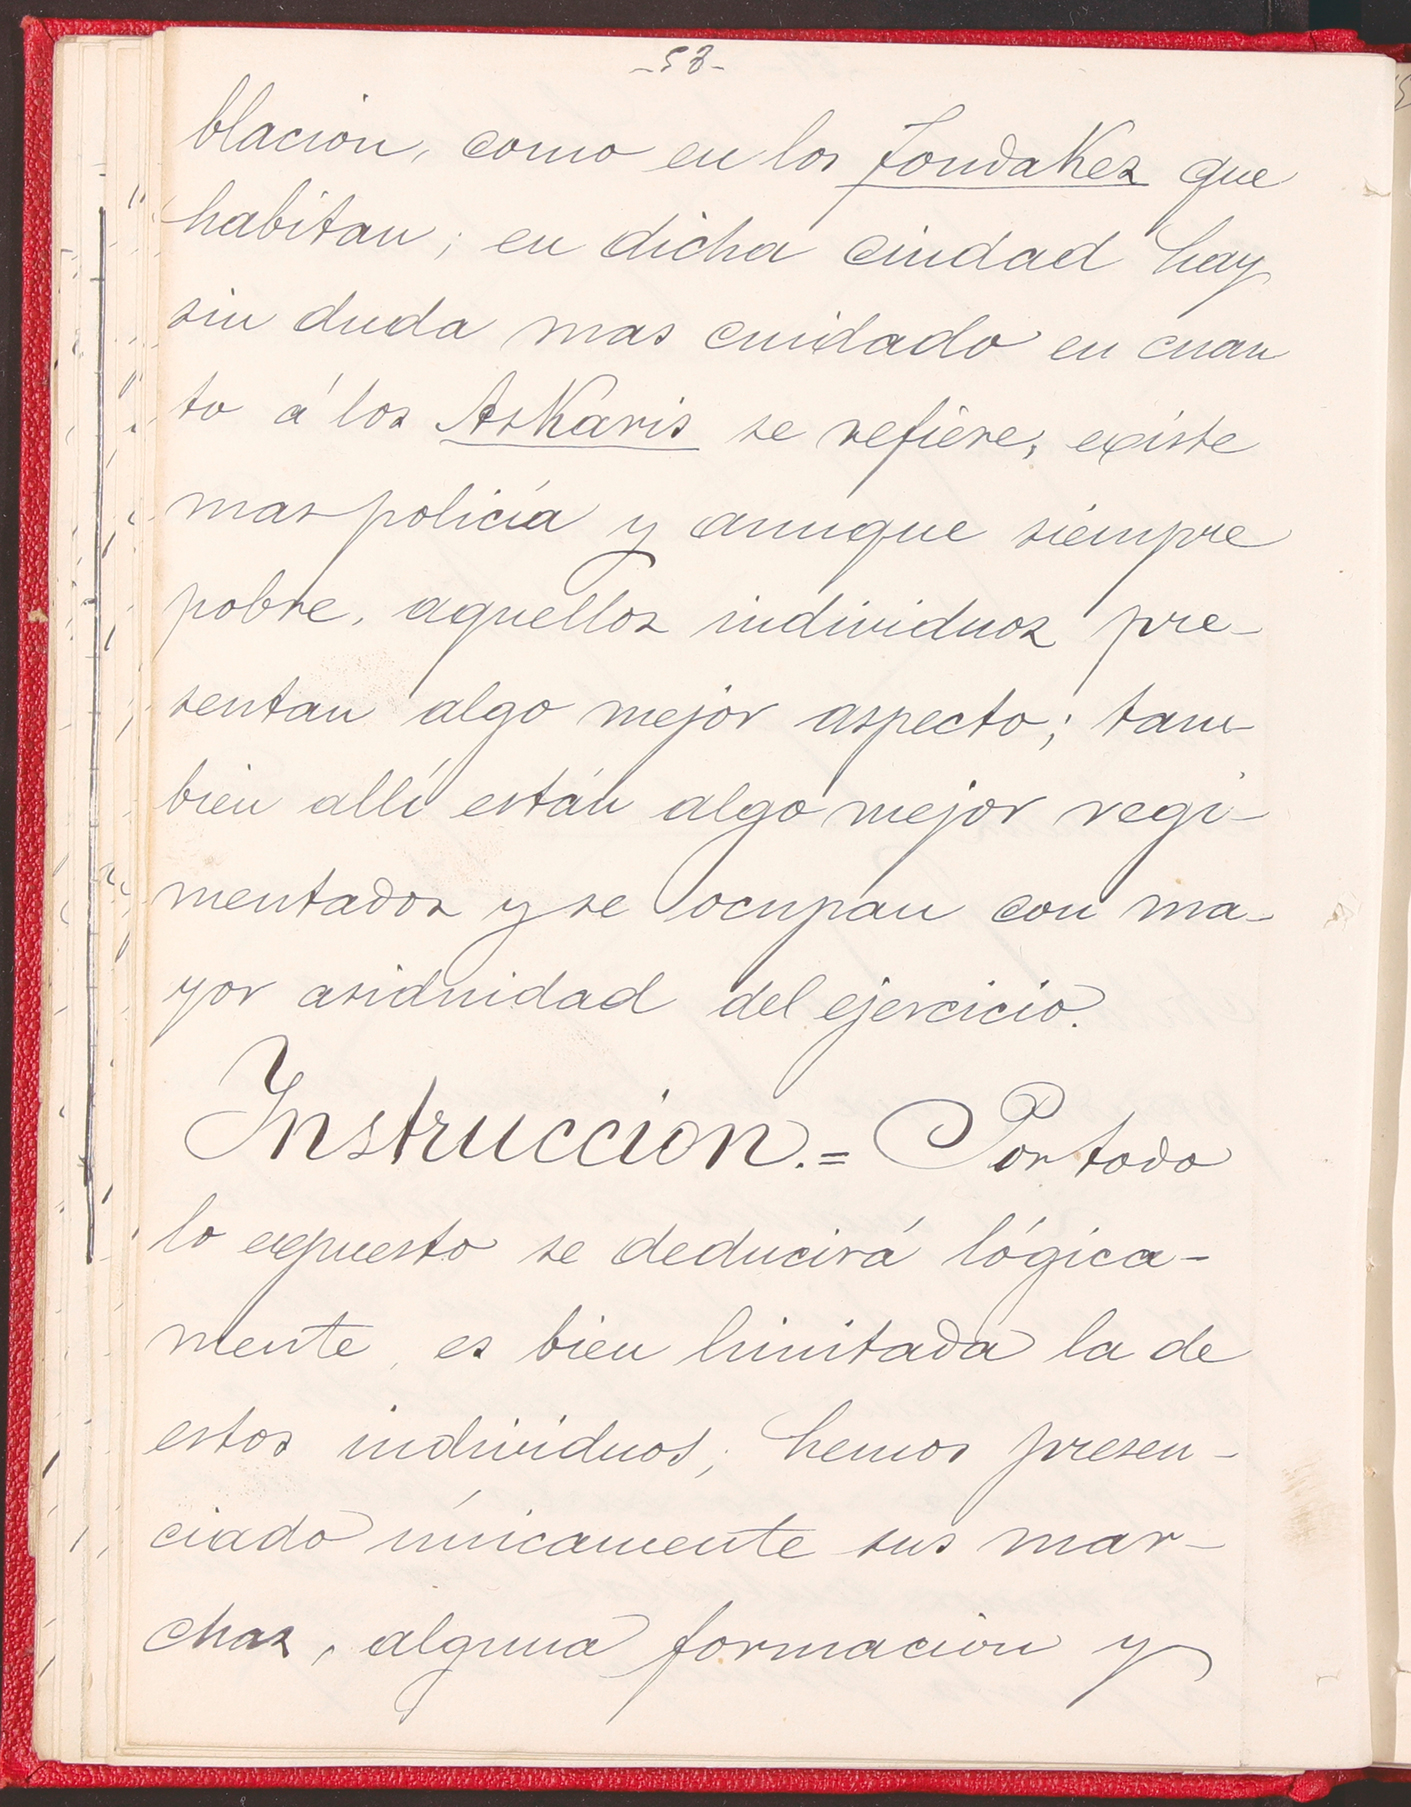 -58-
blacion, como en los fondakes que
habitan; en dicha ciudad hay
sin duda mas cuidado en cuan
to á los Askaris se refiere; existe
mas policía y aunque siempre
pobre, aquellos individuos pre-
sentan algo mejor aspecto; tam-
bien allí están algo mejor regi-
mentados y se ocupan con ma-
yor asiduidad del ejercicio.
Instruccion.= Por todo
lo expuesto se deducirá lógica-
mente, es bien limitada la de
estos individuos; hemos presen-
ciado únicamente sus mar-
chas, alguna formacion y